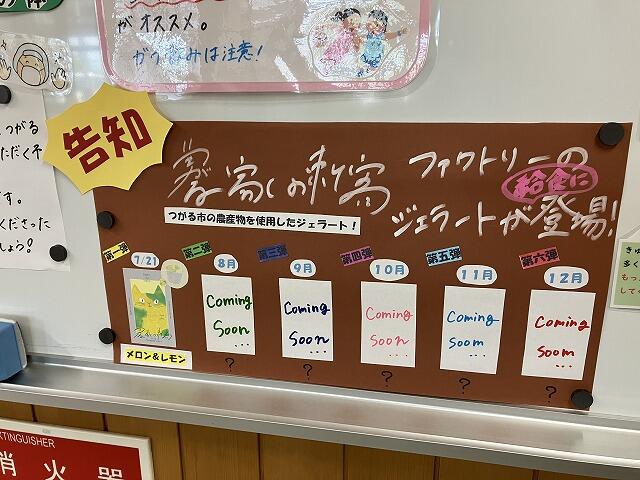 がオススメ。
ガブ飲みは注意!
つがる
ただく予
す。
くださった
しょう?
告知
ファクトリーの
給食に
ジェラートが登場!
つがる市の農産物を使用したジェラート!
第一弾
7/21
メロン&レモン
第二弾
8月
Coming
Soon
...
?
第三弾
9月
Coming
Soon
...
?
第四弾
10月
Coming
Soon
...
?
第五弾
11月
Coming
Soon
...
?
第六弾
12月
Coming
Soon
...
?
きゅ
多く
もっ
して
XTINGUISHER
消火器